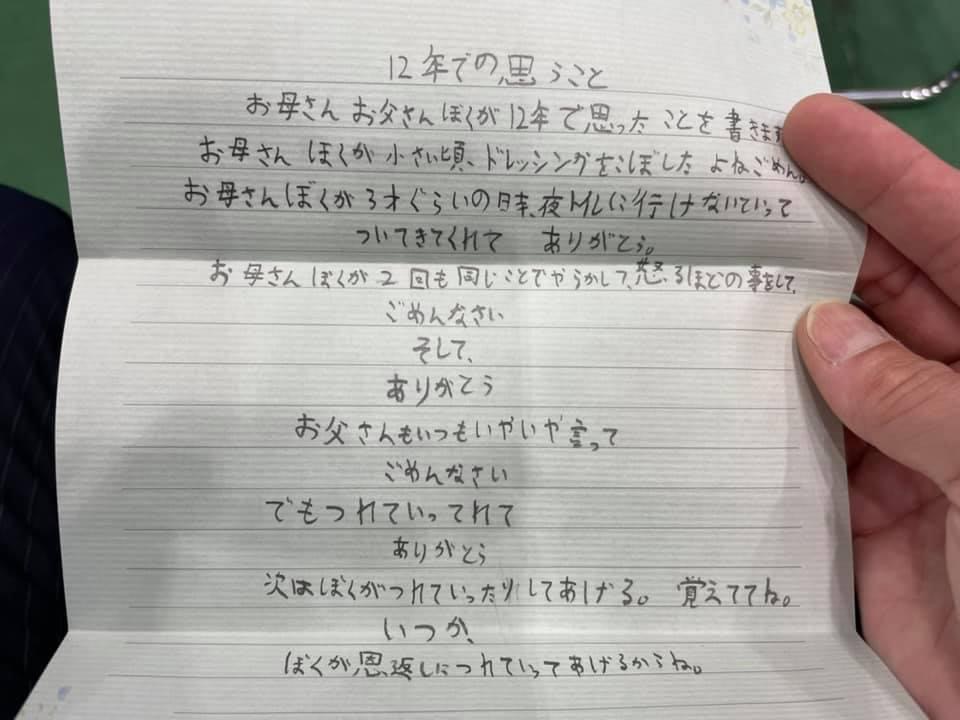 12年での思うこと
お母さん お父さん ぼくが 12年で思ったことを書きます
お母さん ぼくが小さい頃、ドレッシングをこぼしたよねごめん。
お母さんぼくが3才ぐらいの時、夜トイレに行けないていって
ついてきてくれて ありがとう。
お母さん ぼくが2回も同じことでやらかして、怒るほどの事をして、
ごめんなさい
そして、
ありがとう
お父さんもいつもいやいや言って
ごめんなさい
でもつれていってれて
ありがとう
次はぼくがつれていったりしてあげる。 覚えててね。
いつか、
ぼくが恩返しにつれていってあげるからね。